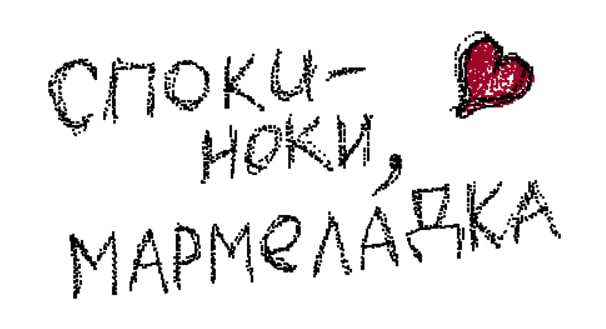 СПОКИ-
НОКИ,
МАРМЕЛАДКА